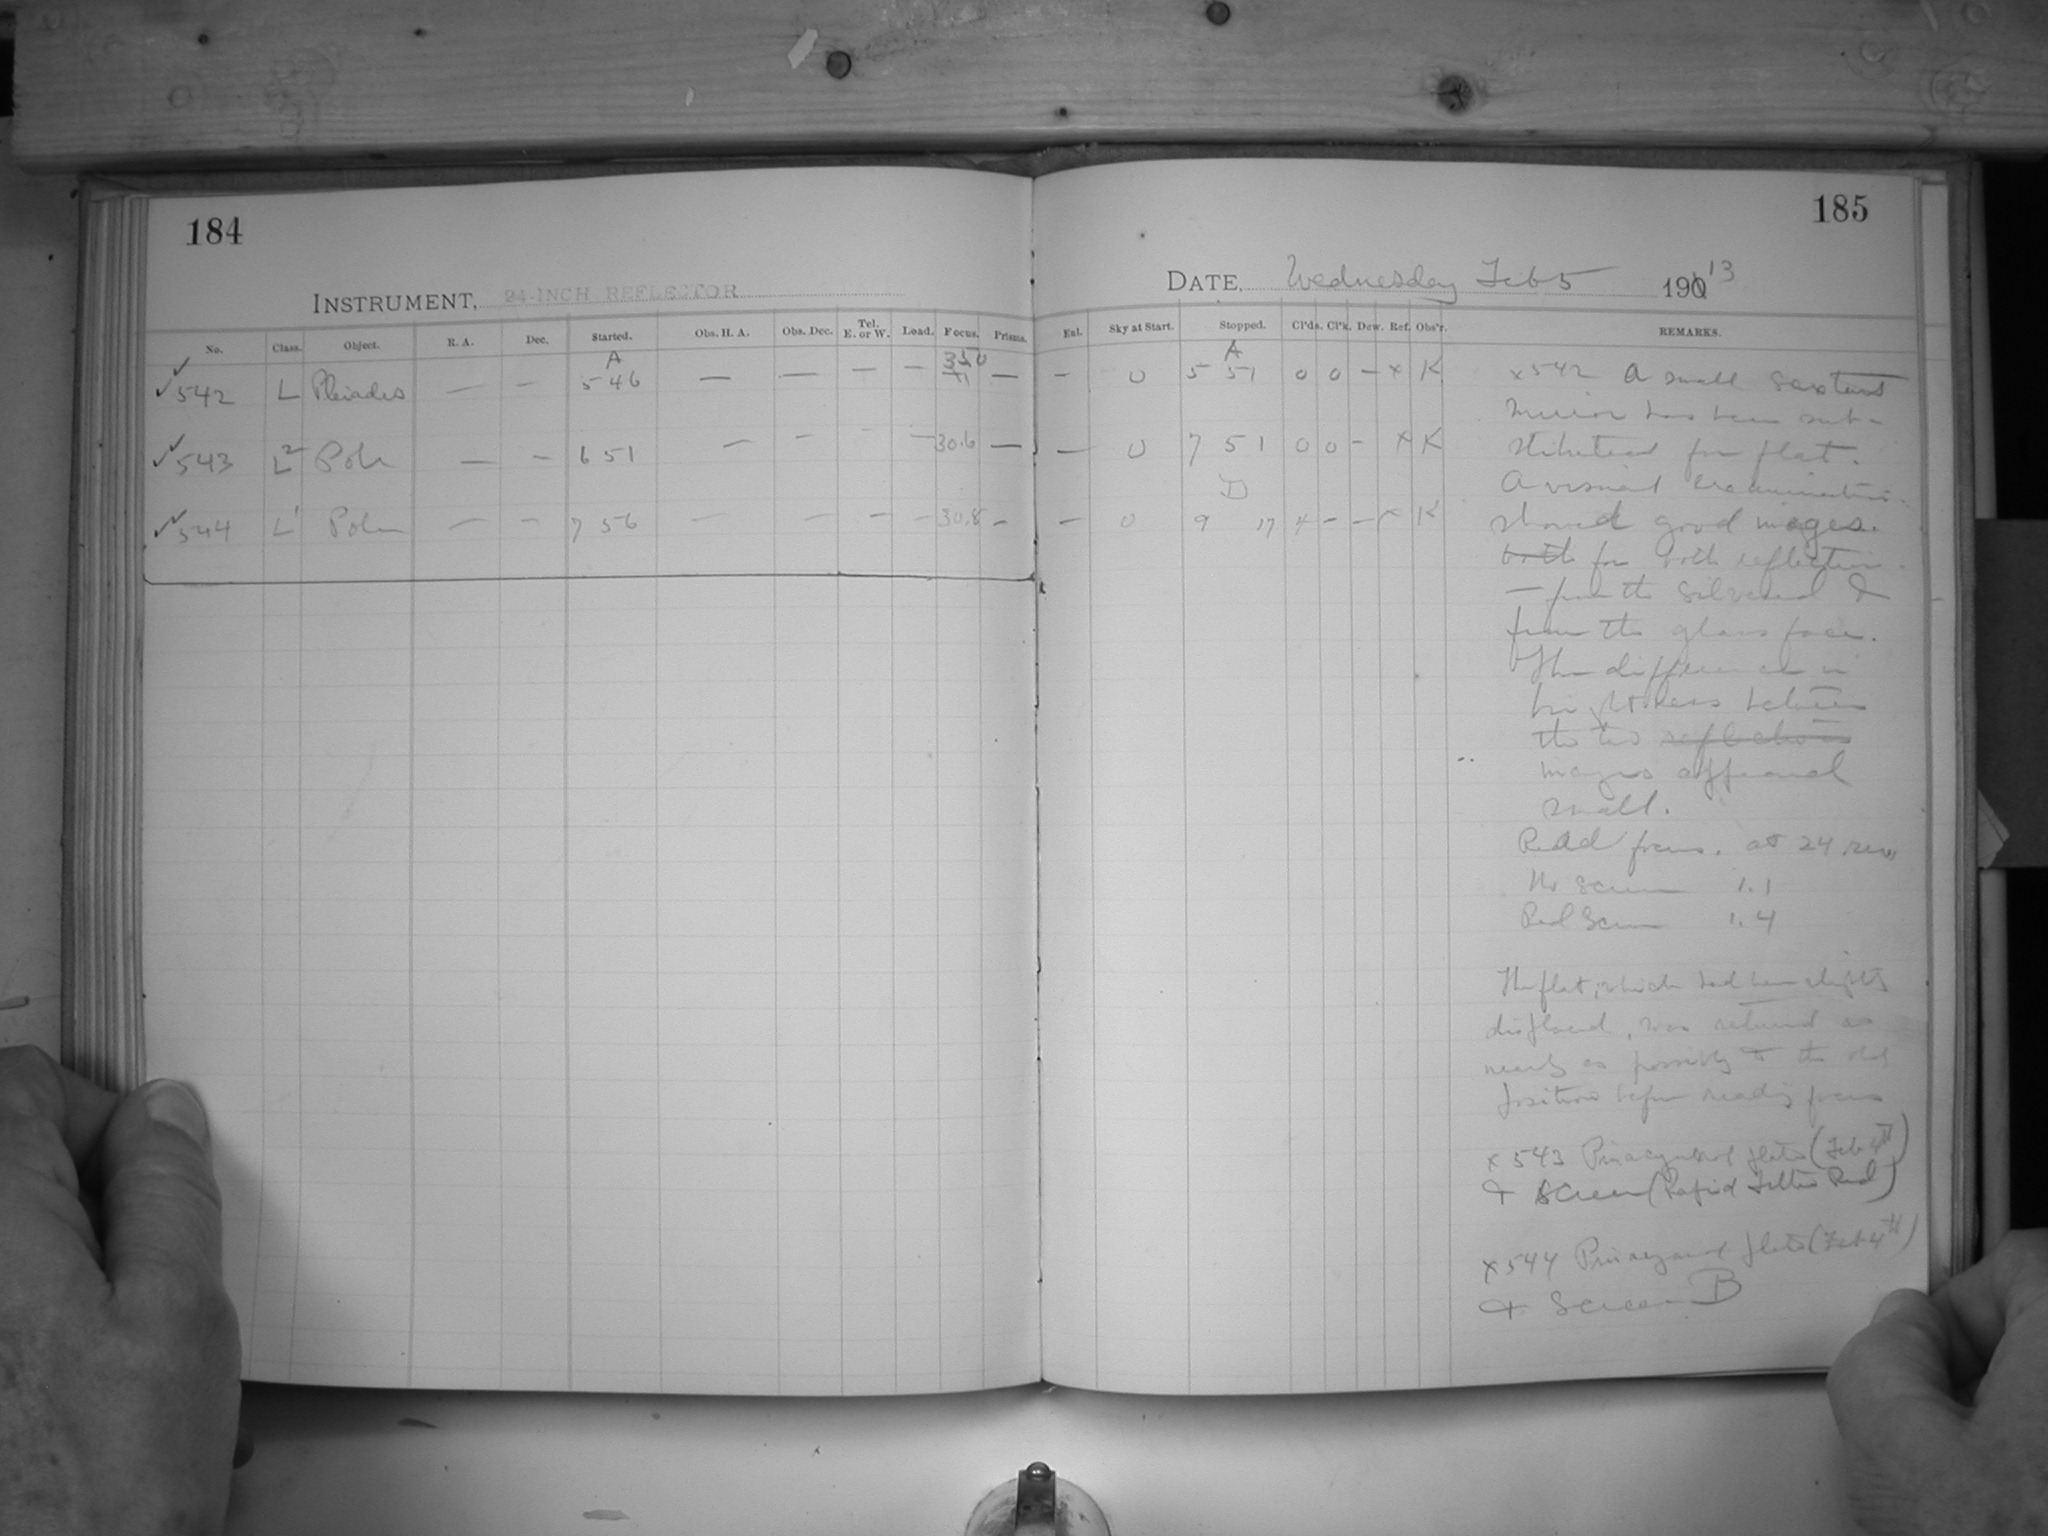 184
185
INSTRUMENT, 24-INCH REFLECTOR
DATE, Wednesday Feb 5 190 13
No. Class. Object. R. A. Dec. Started. Obs. H. A. Obs. Dec. Tel. E. or W. Load. Focus. Prisms. Ext. Sky at Start. Stopped. Cl'ds. Cl'k. Dew. Ref. Obs'r. REMARKS.
A A
✓542 L Pleiades — — 5 46 — — — — — — 0 5 51 0 0 — × K
✓543 L2 Pole — — 6 51 — — — — 30.6 — — 0 7 51 0 0 - × K
D
✓544 L1 Pole — — 7 56 — — — — 30.8 — — 0 9 17 4 — — × K
×542 A small sextant
mirror has been sub-
stituted for flat.
A visual examination
showed good images.
both for both reflection
— from the silvered &
from the glass face.
The difference in
brightness between
the two reflections
images appeared
small.
Read focus. at 24 rev,
No Screen 1.1
Red Screen 1.4
The flat, which had been slightly
displaced, was returned as
nearly as possibly to the old
position before reading focus
× 543 Pinacyanol plate (Feb 4th)
& Screen (Rapid Filter Red)
× 544 Pinacyanol plate (Feb 4th)
& Screen B